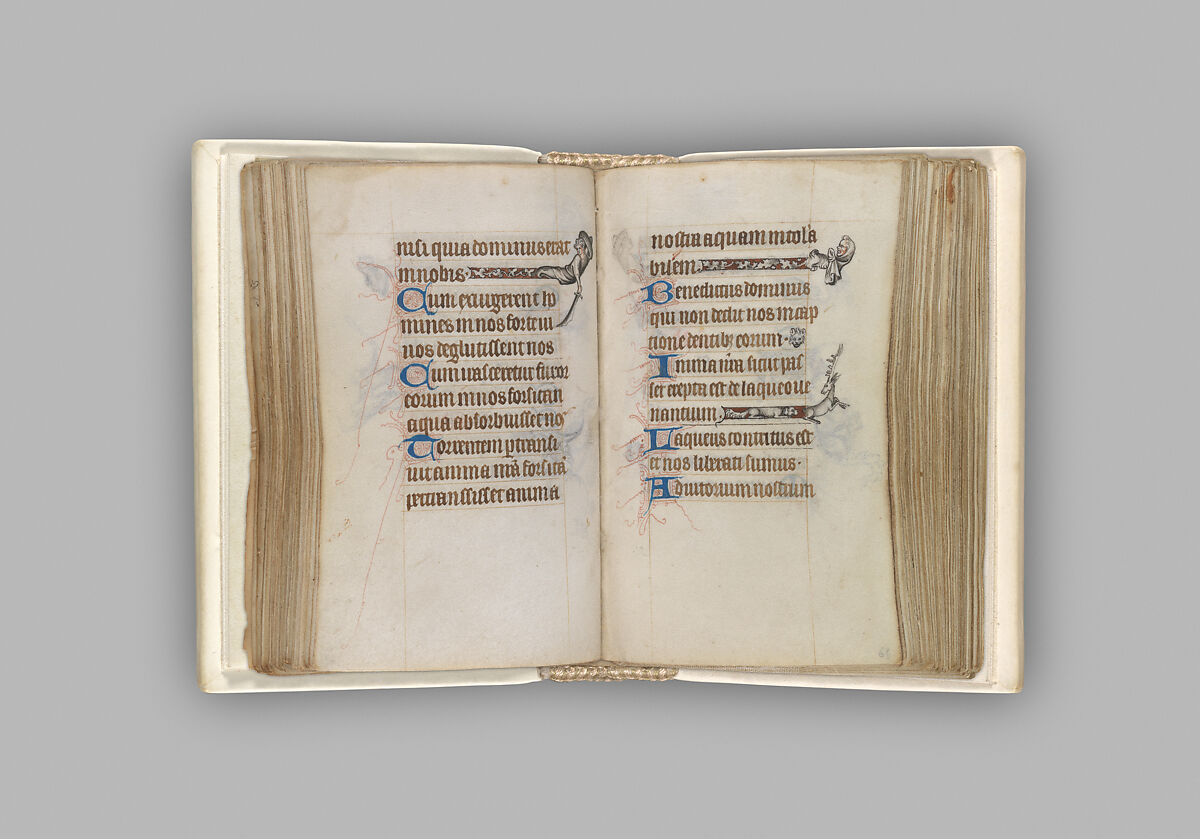 nisi quia dominus erat
in nobis
Cum exurgerent ho
mines in nos forte ui
nos deglutissent nos
Cum irasceretur furor
eorum in nos forsitan
aqua absorbuisset no
Torrentem ptransi
uit anima nrā forsitā
pertransisset anima
nostra aquam intolā
bilem
Benedictus dominus
qui non dedit nos in cap
tione dentibꝫ eorum
Anima nrā sicut pas
ser erepta est de laqueo ue
nantium
Laqueus contritus est
et nos liberati sumus
Adiutorium nostrum